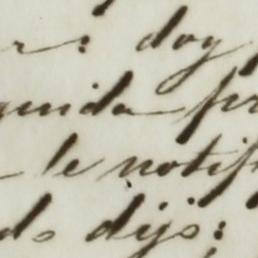 r: doy
guida pr
le notif
do dijo: